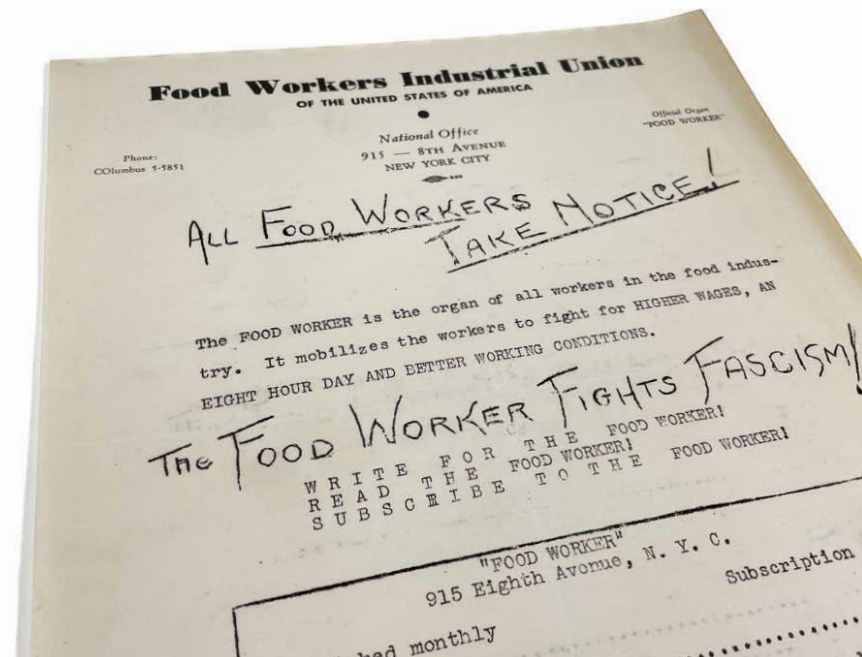 Food Workers Industrial Union
OF THE UNITED STATES OF AMERICA
Phone:
COlumbus 5-5851
National Office
915 — 8TH AVENUE
NEW YORK CITY
Official Organ
"FOOD WORKER"
ALL FOOD WORKERS
TAKE NOTICE!
The FOOD WORKER is the organ of all workers in the food indus-
try. It mobilizes the workers to fight for HIGHER WAGES, AN
EIGHT HOUR DAY AND BETTER WORKING CONDITIONS.
The FOOD WORKER FIGHTS FASCISM!
WRITE FOR THE FOOD WORKER!
READ THE FOOD WORKER!
SUBSCRIBE TO THE FOOD WORKER!
"FOOD WORKER"
915 Eighth Avonue, N. Y. C.
Subscription
monthly